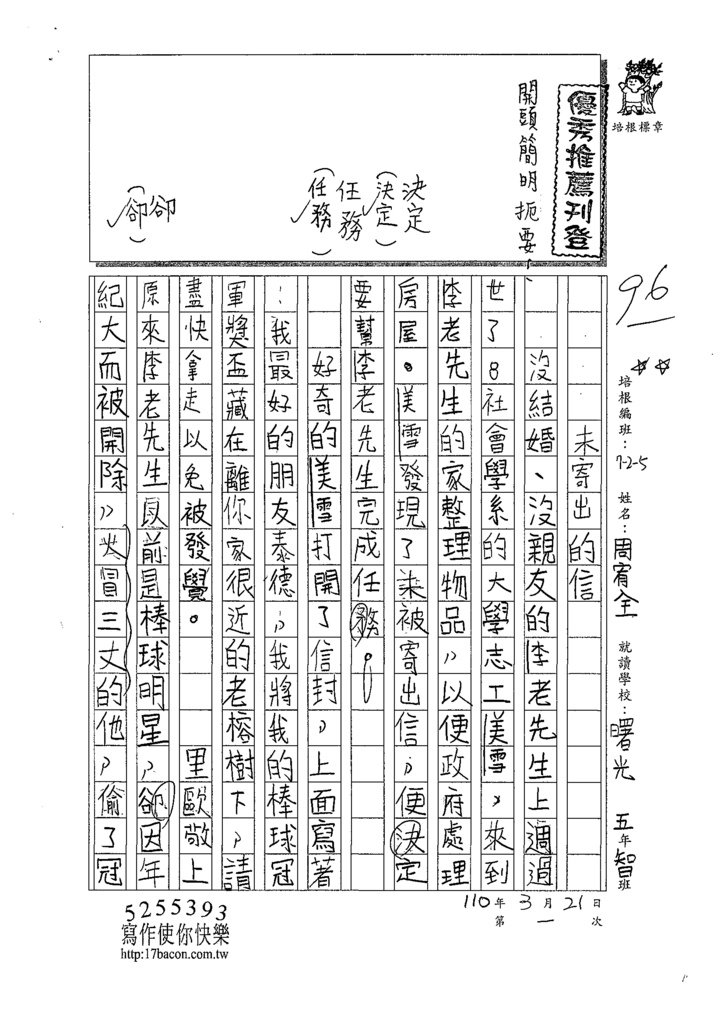 培根標章
優秀推薦刊登
開頭簡明扼要!
決定
(決定)
任務
(任務)
卻
(卻)
96
培根編班:7-2-5 姓名:周宥全 就讀學校:曙光 五年智班
110年3月21日
第一次
未寄出的信
沒結婚、沒親友的李老先生上週過
世了。社會學系的大學志工美雪,來到
李老先生的家整理物品,以便政府處理
房屋。美雪發現了未被寄出信,便決定
要幫李老先生完成任務。
好奇的美雪打開了信封,上面寫著
:我最好的朋友泰德,我將我的棒球冠
軍獎盃藏在離你家很近的老榕樹下,請
盡快拿走以免被發覺。 里歐敬上
原來李老先生以前是棒球明星,卻因年
紀大而被開除,火冒三丈的他,偷了冠
5255393
寫作使你快樂
http:17bacon.com.tw